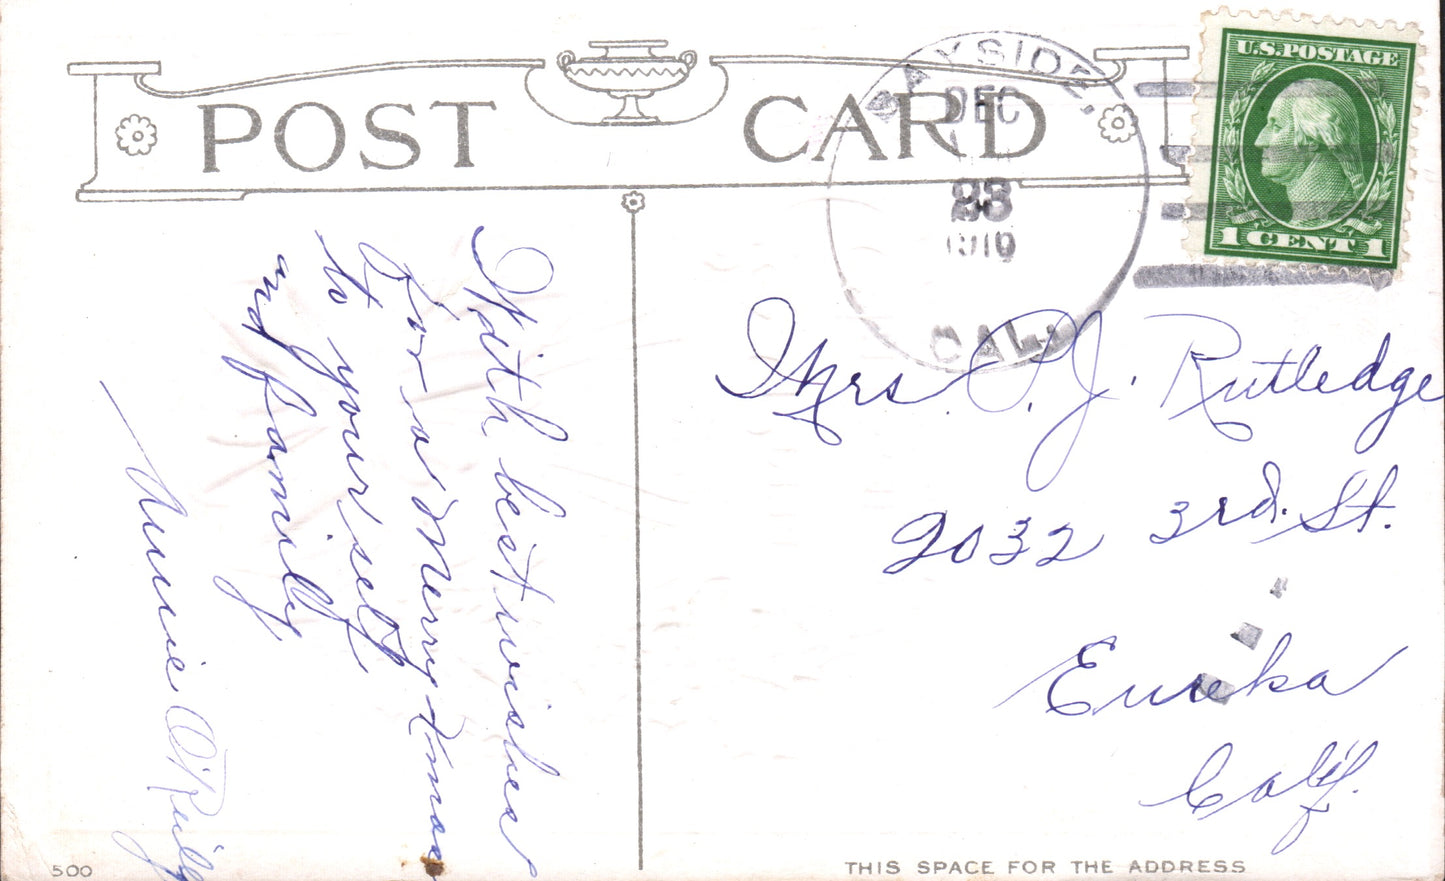 POST CARD
BAYSIDE,
DEC
23
CAL.
U.S. POSTAGE
1 CENT 1
With best wishes
for a Merry Xmas
to your self
and family
Annie O'Reilly
Mrs. P. J. Rutledge
2032 3rd. St.
Eureka
Calif.
500
THIS SPACE FOR THE ADDRESS